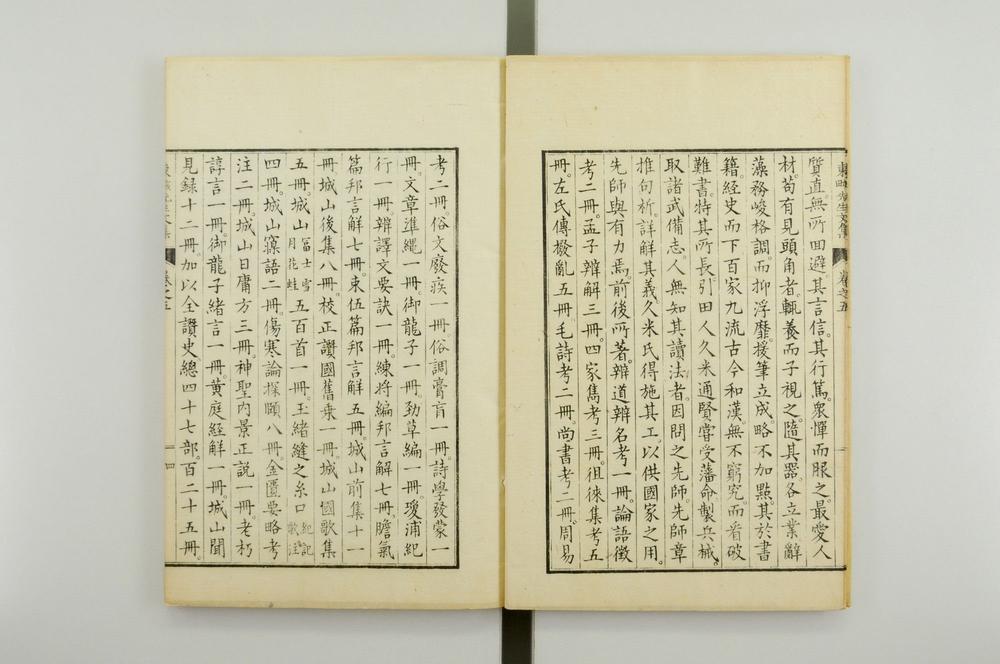 東畡先生文集 卷之五
質直無所回避。其言信。其行篤。衆憚而服之。最愛人
材。苟有見頭角者。輒養而子視之。隨其器。各立業。辭
藻務峻格調。而抑浮靡。援筆立成。略不加點。其於書
籍。經史而下百家九流古今和漢。無不窮究。而看破
難書。特其所長。引田人久米通賢嘗受藩命製兵械。
取諸武備志。人無知其讀法者。因問之先師。先師章
推句析。詳解其義。久米氏得施其工。以供國家之用。
先師與有力焉。前後所著。辯道辯名考一冊。論語徵
考二冊。孟子辯解三冊。四家雋考三冊。徂徠集考五
冊。左氏傳撥亂五冊。毛詩考二冊。尚書考二冊。周易
考二冊。俗文廢疾一冊。俗調膏肓一冊。詩學發蒙一
冊。文章準繩一冊。御龍子一冊。勁草編一冊。瓊浦紀
行一冊。辨譯文要訣一冊。練將編邦言解七冊。膽氣
篇邦言解七冊。束伍篇邦言解五冊。城山前集十一
冊。城山後集八冊。校正讚國舊乘一冊。城山國歌集
五冊。城山富士雪月花蛙五百首一冊。玉緒縫之糸口紀記歌注
四冊。城山寐語二冊。傷寒論探賾八冊。金匱要略考
注二冊。城山日庸方三冊。神聖内景正説一冊。老朽
諄言一冊。御龍子緒言一冊。黄庭經解一冊。城山聞
見録十二冊。加以全讚史。總四十七部。百二十五冊。
四